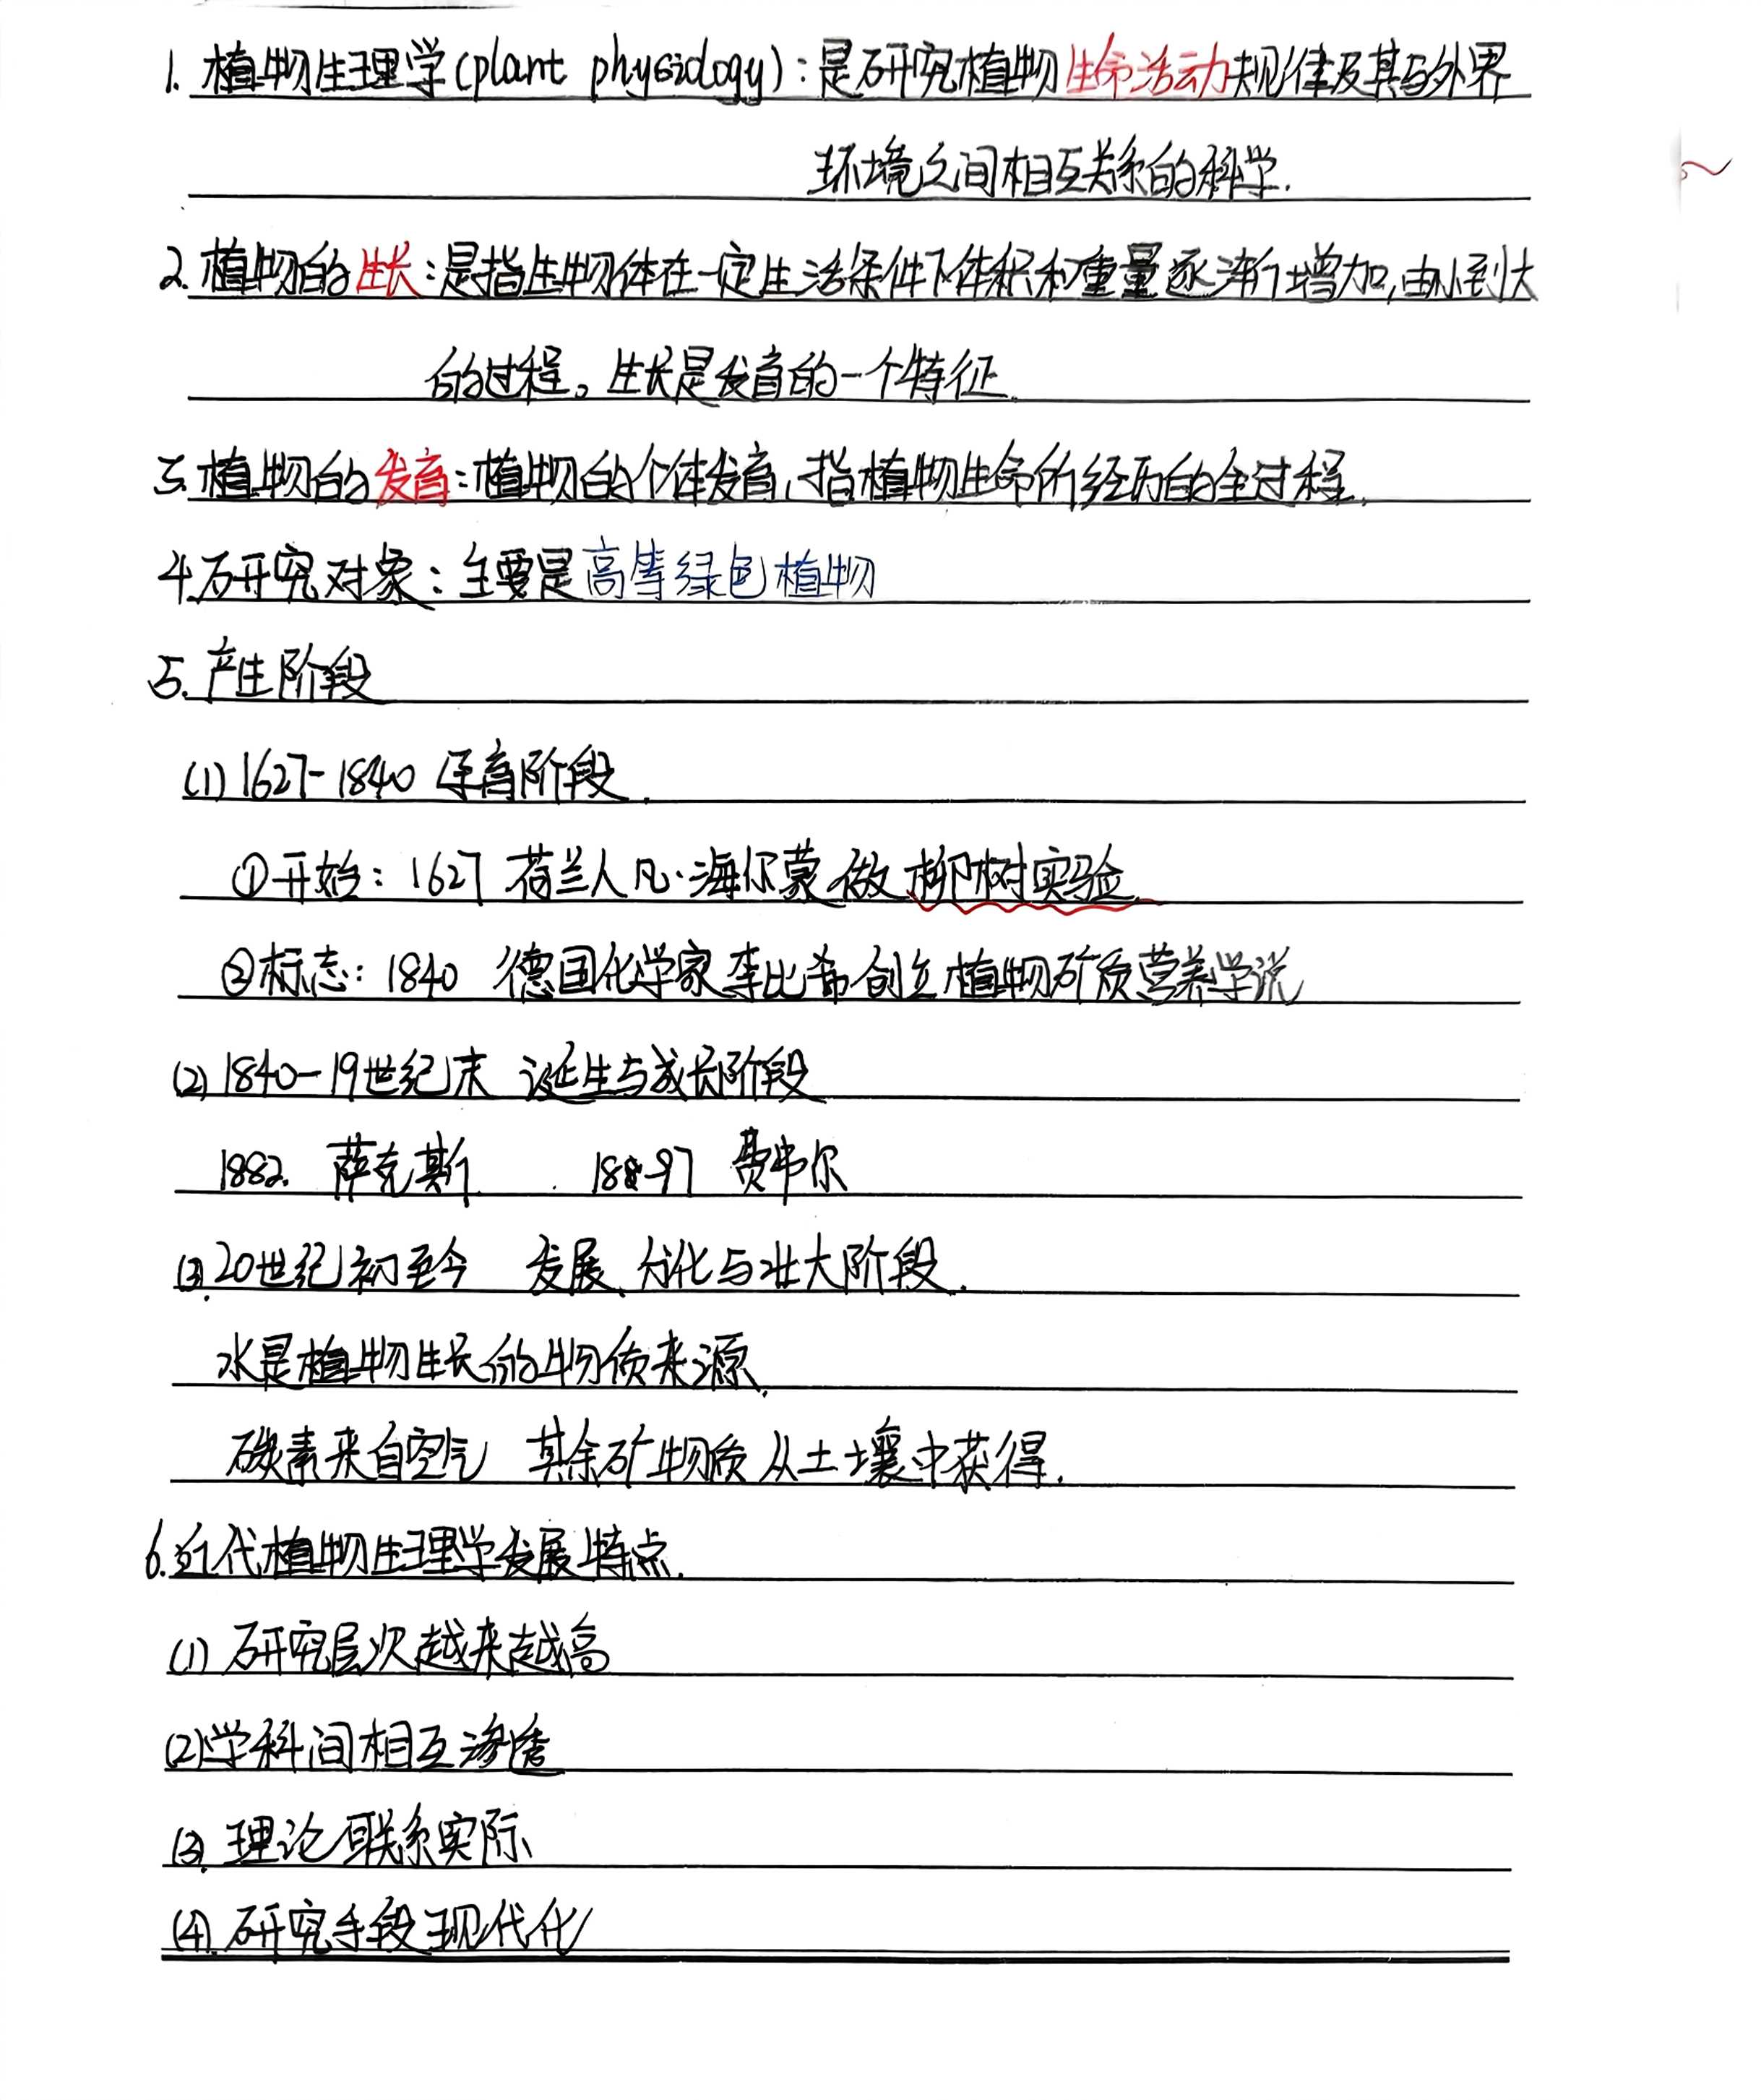 1. 植物生理学(plant physiology):是研究植物生命活动规律及其与外界
环境之间相互关系的科学.
2. 植物的生长:是指生物体在一定生活条件下体积和重量逐渐增加,由小到大
的过程。生长是发育的一个特征.
3. 植物的发育:植物的个体发育,指植物生命所经历的全过程.
4. 研究对象:主要是高等绿色植物
5. 产生阶段
(1) 1627-1840 孕育阶段.
①开始:1627 荷兰人凡·海尔蒙做柳树实验.
②标志:1840 德国化学家李比希创立植物矿质营养学说
(2) 1840-19世纪末 诞生与成长阶段
1882. 萨克斯 . 1897 费弗尔
(3). 20世纪初至今 发展、分化与壮大阶段.
水是植物生长的物质来源.
碳素来自空气 其余矿物质从土壤中获得.
6. 近代植物生理学发展特点.
(1) 研究层次越来越高
(2) 学科间相互渗透
(3). 理论联系实际
(4). 研究手段现代化